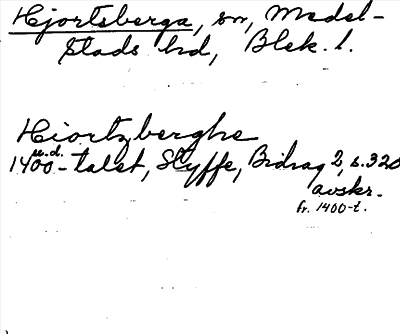 Hjortsberga, sn, Medel-
stads hd, Blek. l.
Hiortzberghe
u.d.
1400-talet, Styffe, Bidrag 2, s. 320
avskr.
fr. 1400-t.